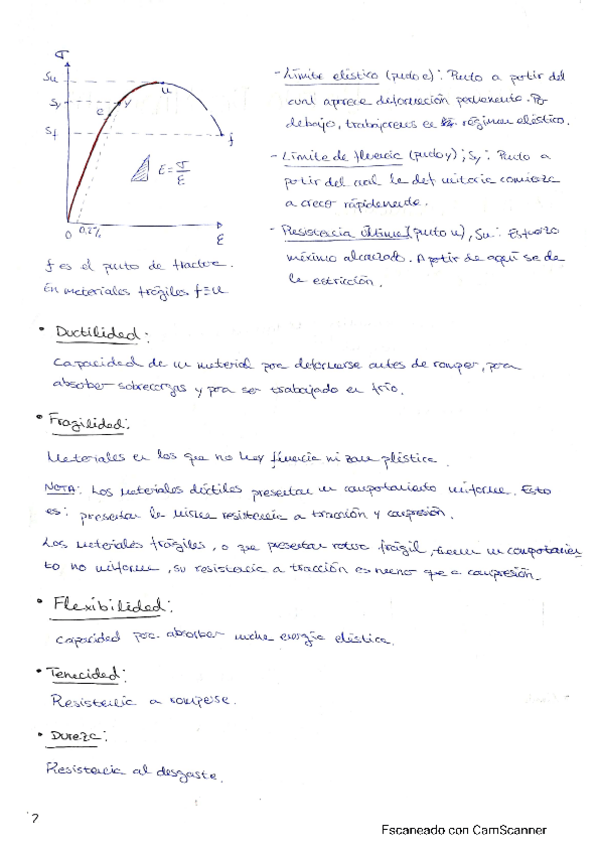 σ
Su
Sy
Sf
e
y
u
f
E = σ/ε
0
0.2%
ε
- Límite elástico (punto e): Punto a partir del
cual aparece deformación permanente. Por
debajo, trabajaremos en régimen elástico.
- Límite de fluencia (punto y); Sy: Punto a
partir del cual la def unitaria comienza
a crecer rápidamente.
- Resistencia última (punto u), Su: Esfuerzo
máximo alcanzado. A partir de aquí se da
la estricción.
f es el punto de fractura.
En materiales frágiles f≡u
• Ductilidad:
Capacidad de un material para deformarse antes de romper, para
absorber sobrecargas y para ser trabajado en frío.
• Fragilidad:
Materiales en los que no hay fluencia ni zona plástica.
NOTA: Los materiales dúctiles presentan un comportamiento uniforme. Esto
es: presentan la misma resistencia a tracción y compresión.
Los materiales frágiles, o que presentan rotura frágil, tienen un comportamien
to no uniforme, su resistencia a tracción es menor que a compresión.
• Flexibilidad:
Capacidad para absorber mucha energía elástica.
• Tenacidad:
Resistencia a romperse.
• Dureza:
Resistencia al desgaste.
2
Escaneado con CamScanner